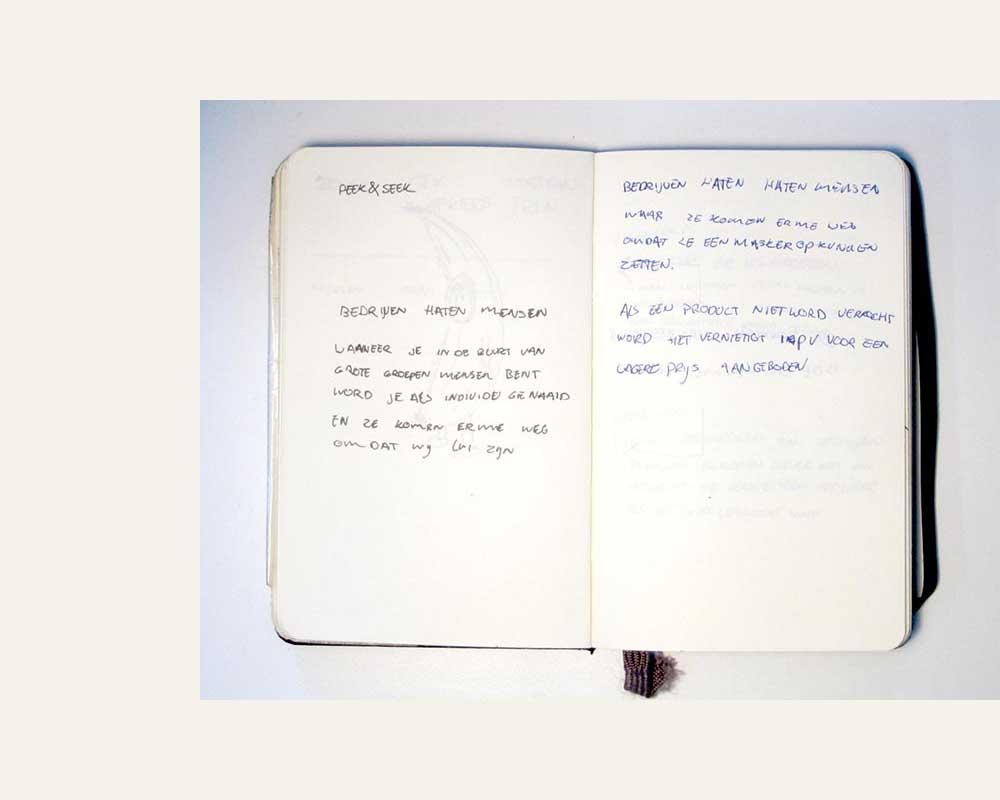 PEEK & SEEK
BEDRIJVEN HATEN MENSEN
WANNEER JE IN DE BUURT VAN
GROTE GROEPEN MENSEN BENT
WORD JE ALS INDIVIDU GENAAID
EN ZE KOMEN ERMEE WEG
OMDAT WIJ LUI ZIJN
BEDRIJVEN HATEN HATEN MENSEN
WAAR ZE KOMEN ERME WEG
OMDAT ZE EEN MASKER OP KUNNEN
ZETTEN.
ALS EEN PRODUCT NIET WORD VERKOCHT
WORD HET VERNIETIGT I.P.V VOOR EEN
LAGERE PRIJS AANGEBODEN